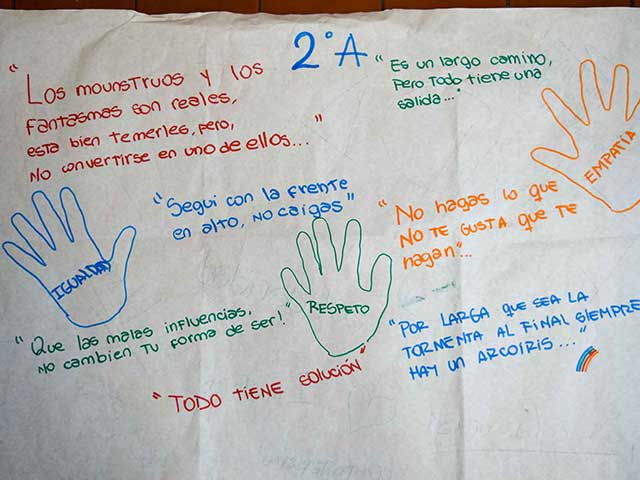 2° A
"LOS MOUNSTRUOS Y LOS
FANTASMAS SON REALES,
ESTA BIEN TEMERLES, PERO,
NO CONVERTIRSE EN UNO DE ELLOS..."
"Es un largo camino,
pero todo tiene una
salida..."
EMPATÍA
"Segui con la frente
en alto, no caigas"
"No hagas lo que
NO TE GUSTA QUE TE
hagan"...
IGUALDAD
RESPETO
"Que las malas influencias,
no cambien tu forma de ser!"
"POR LARGA QUE SEA LA
TORMENTA AL FINAL SIEMPRE
HAY UN ARCOIRIS..."
"TODO TIENE SOLUCIÓN"